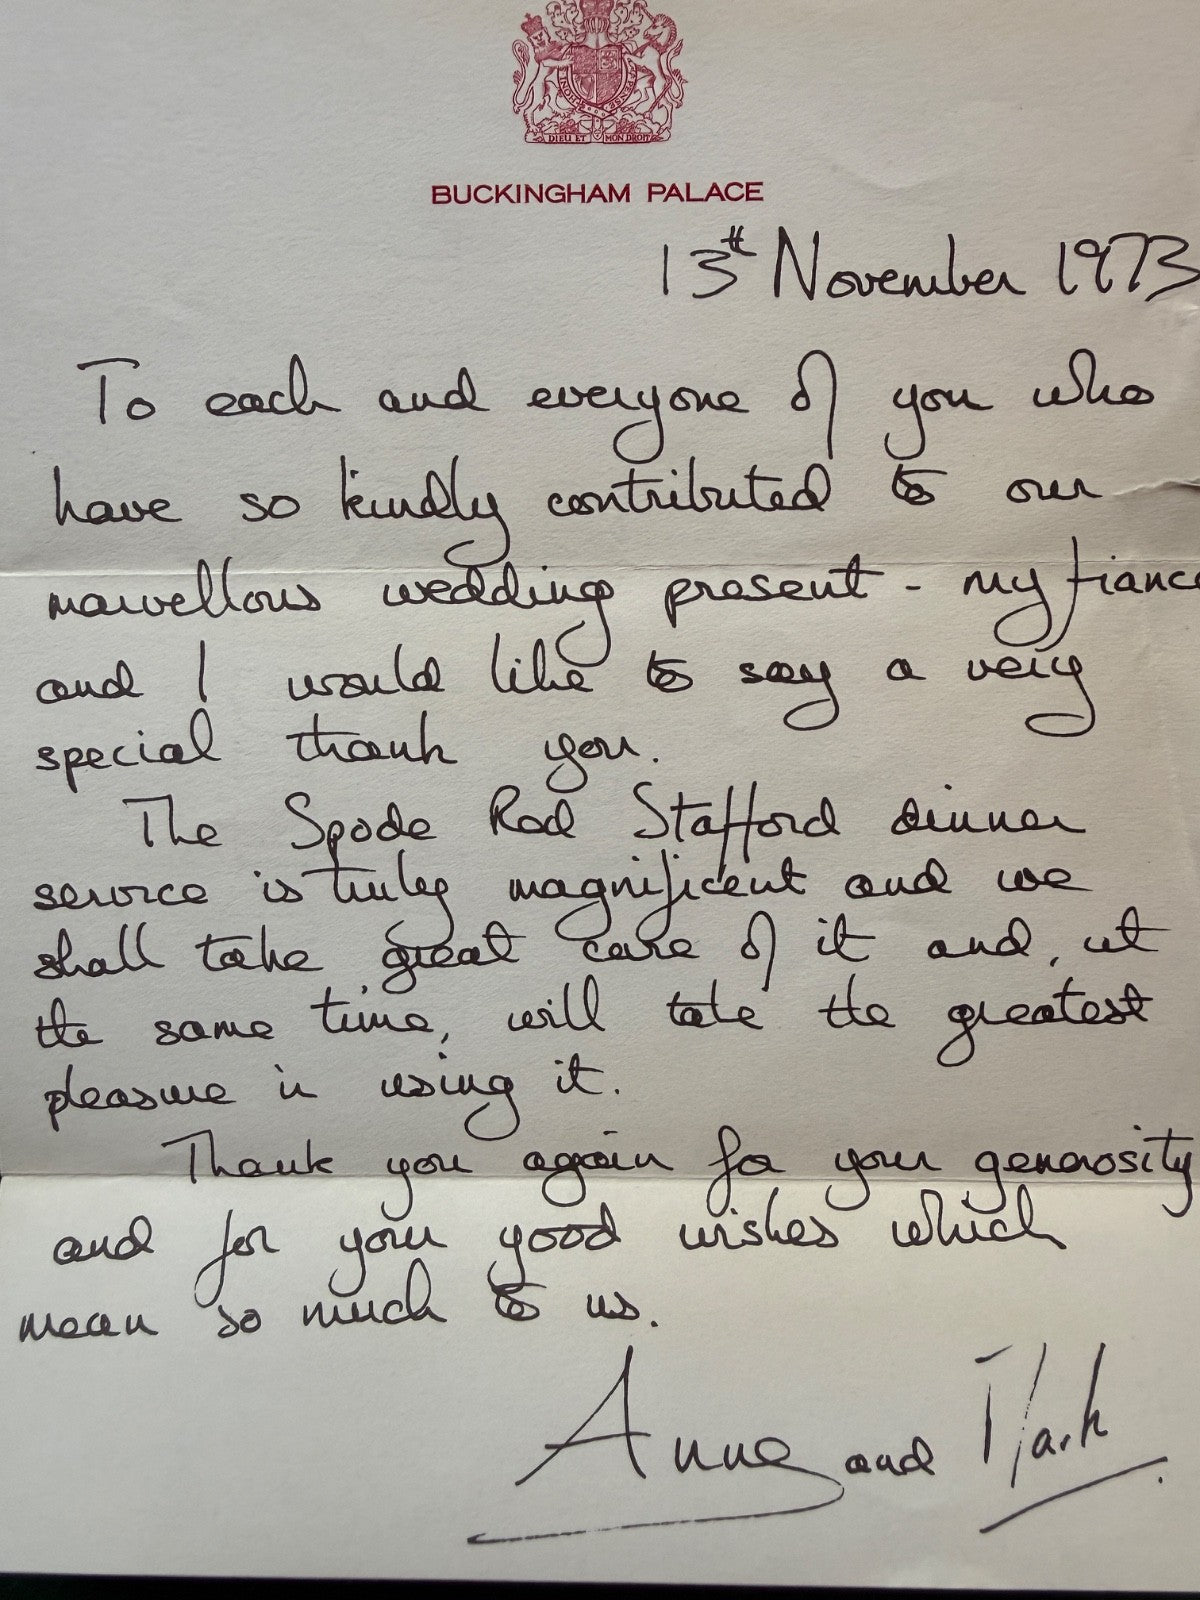 DIEU ET MON DROIT
BUCKINGHAM PALACE
13th November 1973
To each and everyone of you who
have so kindly contributed to our
marvellous wedding present - my fiance
and I would like to say a very
special thank you.
The Spode Red Stafford dinner
service is truly magnificent and we
shall take great care of it and, at
the same time, will take the greatest
pleasure in using it.
Thank you again for your generosity
and for your good wishes which
mean so much to us.
Anne and Mark.